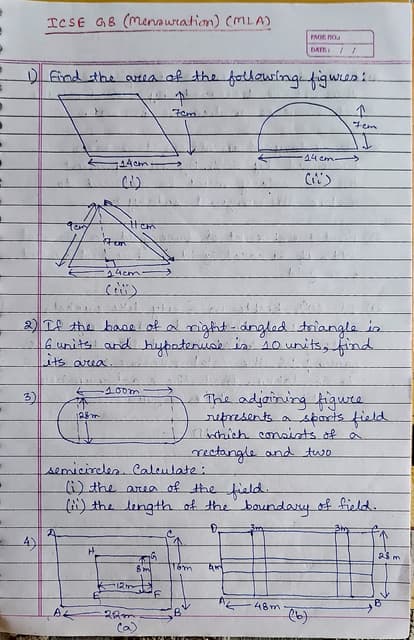 ICSE Q8 (Mensuration) (MLA)
PAGE NO.:
DATE: / /
1) Find the area of the following figures:
7cm
14cm
(i)
7cm
14cm
(ii)
9cm
11cm
7cm
14cm
(iii)
2) If the base of a right-angled triangle is
6 units and hypotenuse is 10 units, find
its area.
3)
100m
28m
The adjoining figure
represents a sports field
which consists of a
rectangle and two
semicircles. Calculate:
(i) the area of the field.
(ii) the length of the boundary of field.
4)
D C
H G
8m
16m
12m
E F
A 22m B
(a)
D 3m 3m C
4m
28m
A 48m B
(b)